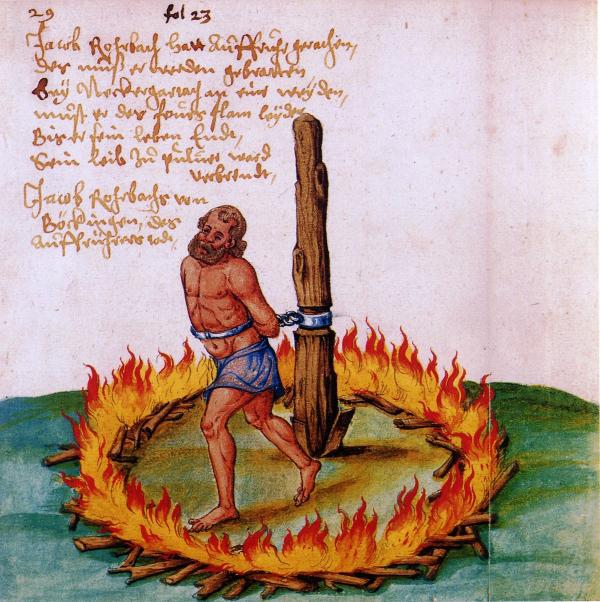 29 fol 23
Jacob Rohrbach hatt Auffruhr gemachen,
Des must er werden gebratten
Bey Neckergartach an eine weyden,
must er des feurs flam leyden
Bis er sein leben Endt,
Sein leib zu puluer ward
verbrendt,
Jacob Rohrbachs von
Böckingen, des
Auffrürers